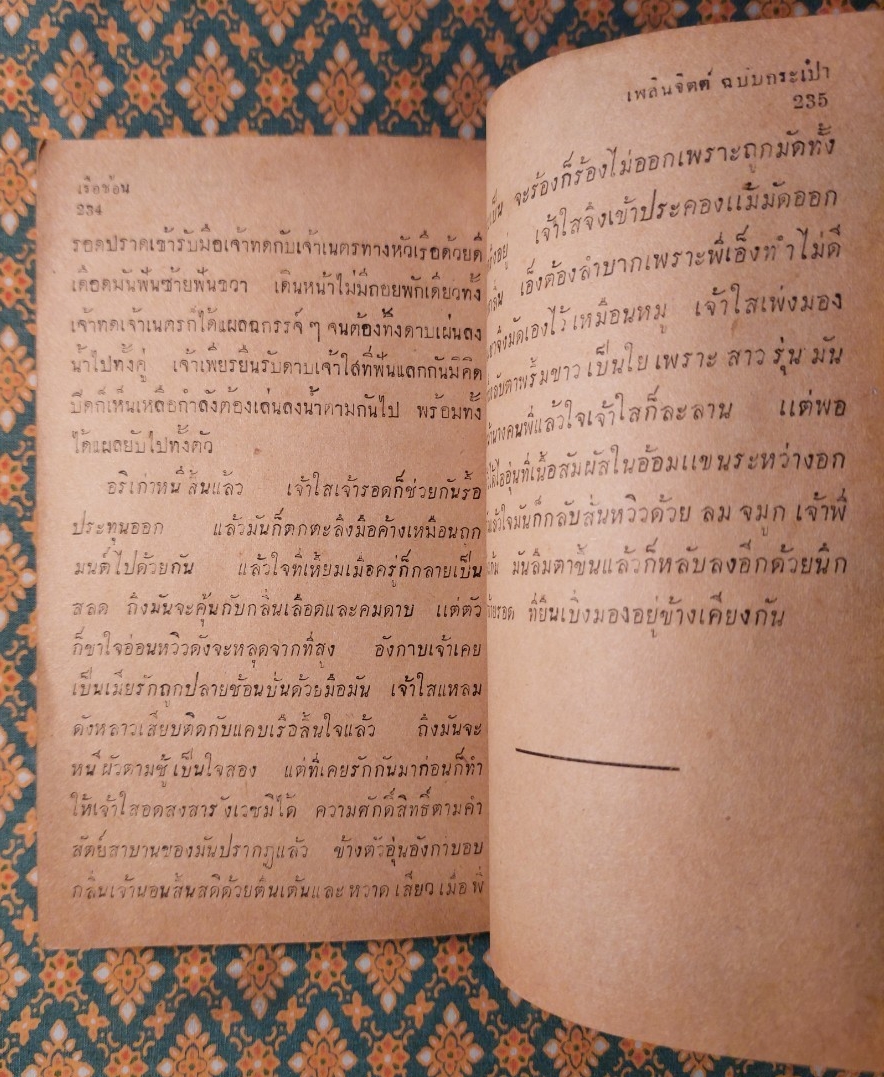 เรือซ้อน
234
รอดปราดเข้ารับมือเจ้าทดกับเจ้าเนตรทางหัวเรือด้วยดี
เดือดมันฟันซ้ายฟันขวา เดินหน้าไม่มีถอยพักเดียวทั้ง
เจ้าทดเจ้าเนตรก็ได้แผลฉกรรจ์ ๆ จนต้องทิ้งดาบเผ่นลง
น้ำไปทั้งคู่ เจ้าเพียรยืนรับดาบเจ้าใสที่ฟันแลกกันมิคิด
ก็เห็นเหลือกำลังต้องเล่นลงน้ำตามกันไป พร้อมทั้ง
ได้แผลยับไปทั้งตัว
อริเก่าหนีสิ้นแล้ว เจ้าใสเจ้ารอดก็ช่วยกันรื้อ
ประทุนออก แล้วมันก็ตกตะลึงมือค้างเหมือนถูก
มนต์ไปด้วยกัน แล้วใจที่เหี้ยมเมื่อครู่ก็กลายเป็น
สลด ถึงมันจะคุ้นกับกลิ่นเลือดและคมดาบ แต่ตัว
ก็ขาใจอ่อนหวิวดังจะหลุดจากที่สูง อังกาบเจ้าเคย
เป็นเมียรักถูกปลายซ้อนบั่นด้วยมือมัน เจ้าใสแหลม
ดังหลาวเสียบติดกับแคบเรือสิ้นใจแล้ว ถึงมันจะ
หนีผัวตามชู้เป็นใจสอง แต่ที่เคยรักกันมาก่อนก็ทำ
ให้เจ้าใสอดสงสารังเวชมิได้ ความศักดิ์สิทธิ์ตามคำ
สัตย์สาบานของมันปรากฏแล้ว ข้างตัวอุ่นอังกาบอบ
กลิ่นเจ้านอนสิ้นสติด้วยตื่นเต้นและหวาดเสียวเมื่อพี่
เพลินจิตต์ ฉบับกระเป๋า
235
จะร้องก็ร้องไม่ออกเพราะถูกมัดทั้ง
อยู่ เจ้าใสจึงเข้าประคองแม้มัดออก
เอ็งต้องลำบากเพราะพี่เอ็งทำไม่ดี
จึงมัดเองไว้เหมือนหมู เจ้าใสเพ่งมอง
พริ้มขาวเป็นใยเพราะสาวรุ่นมัน
นางคนพี่แล้วใจเจ้าใสก็ละลาน แต่พอ
ไออุ่นที่เนื้อสัมผัสในอ้อมแขนระหว่างอก
แล้วใจมันก็กลับสั่นหวิวด้วยลมจมูกเจ้าพี่
มันลืมตาขึ้นแล้วก็หลับลงอีกด้วยนึก
รอด ที่ยืนเบิ่งมองอยู่ข้างเคียงกัน